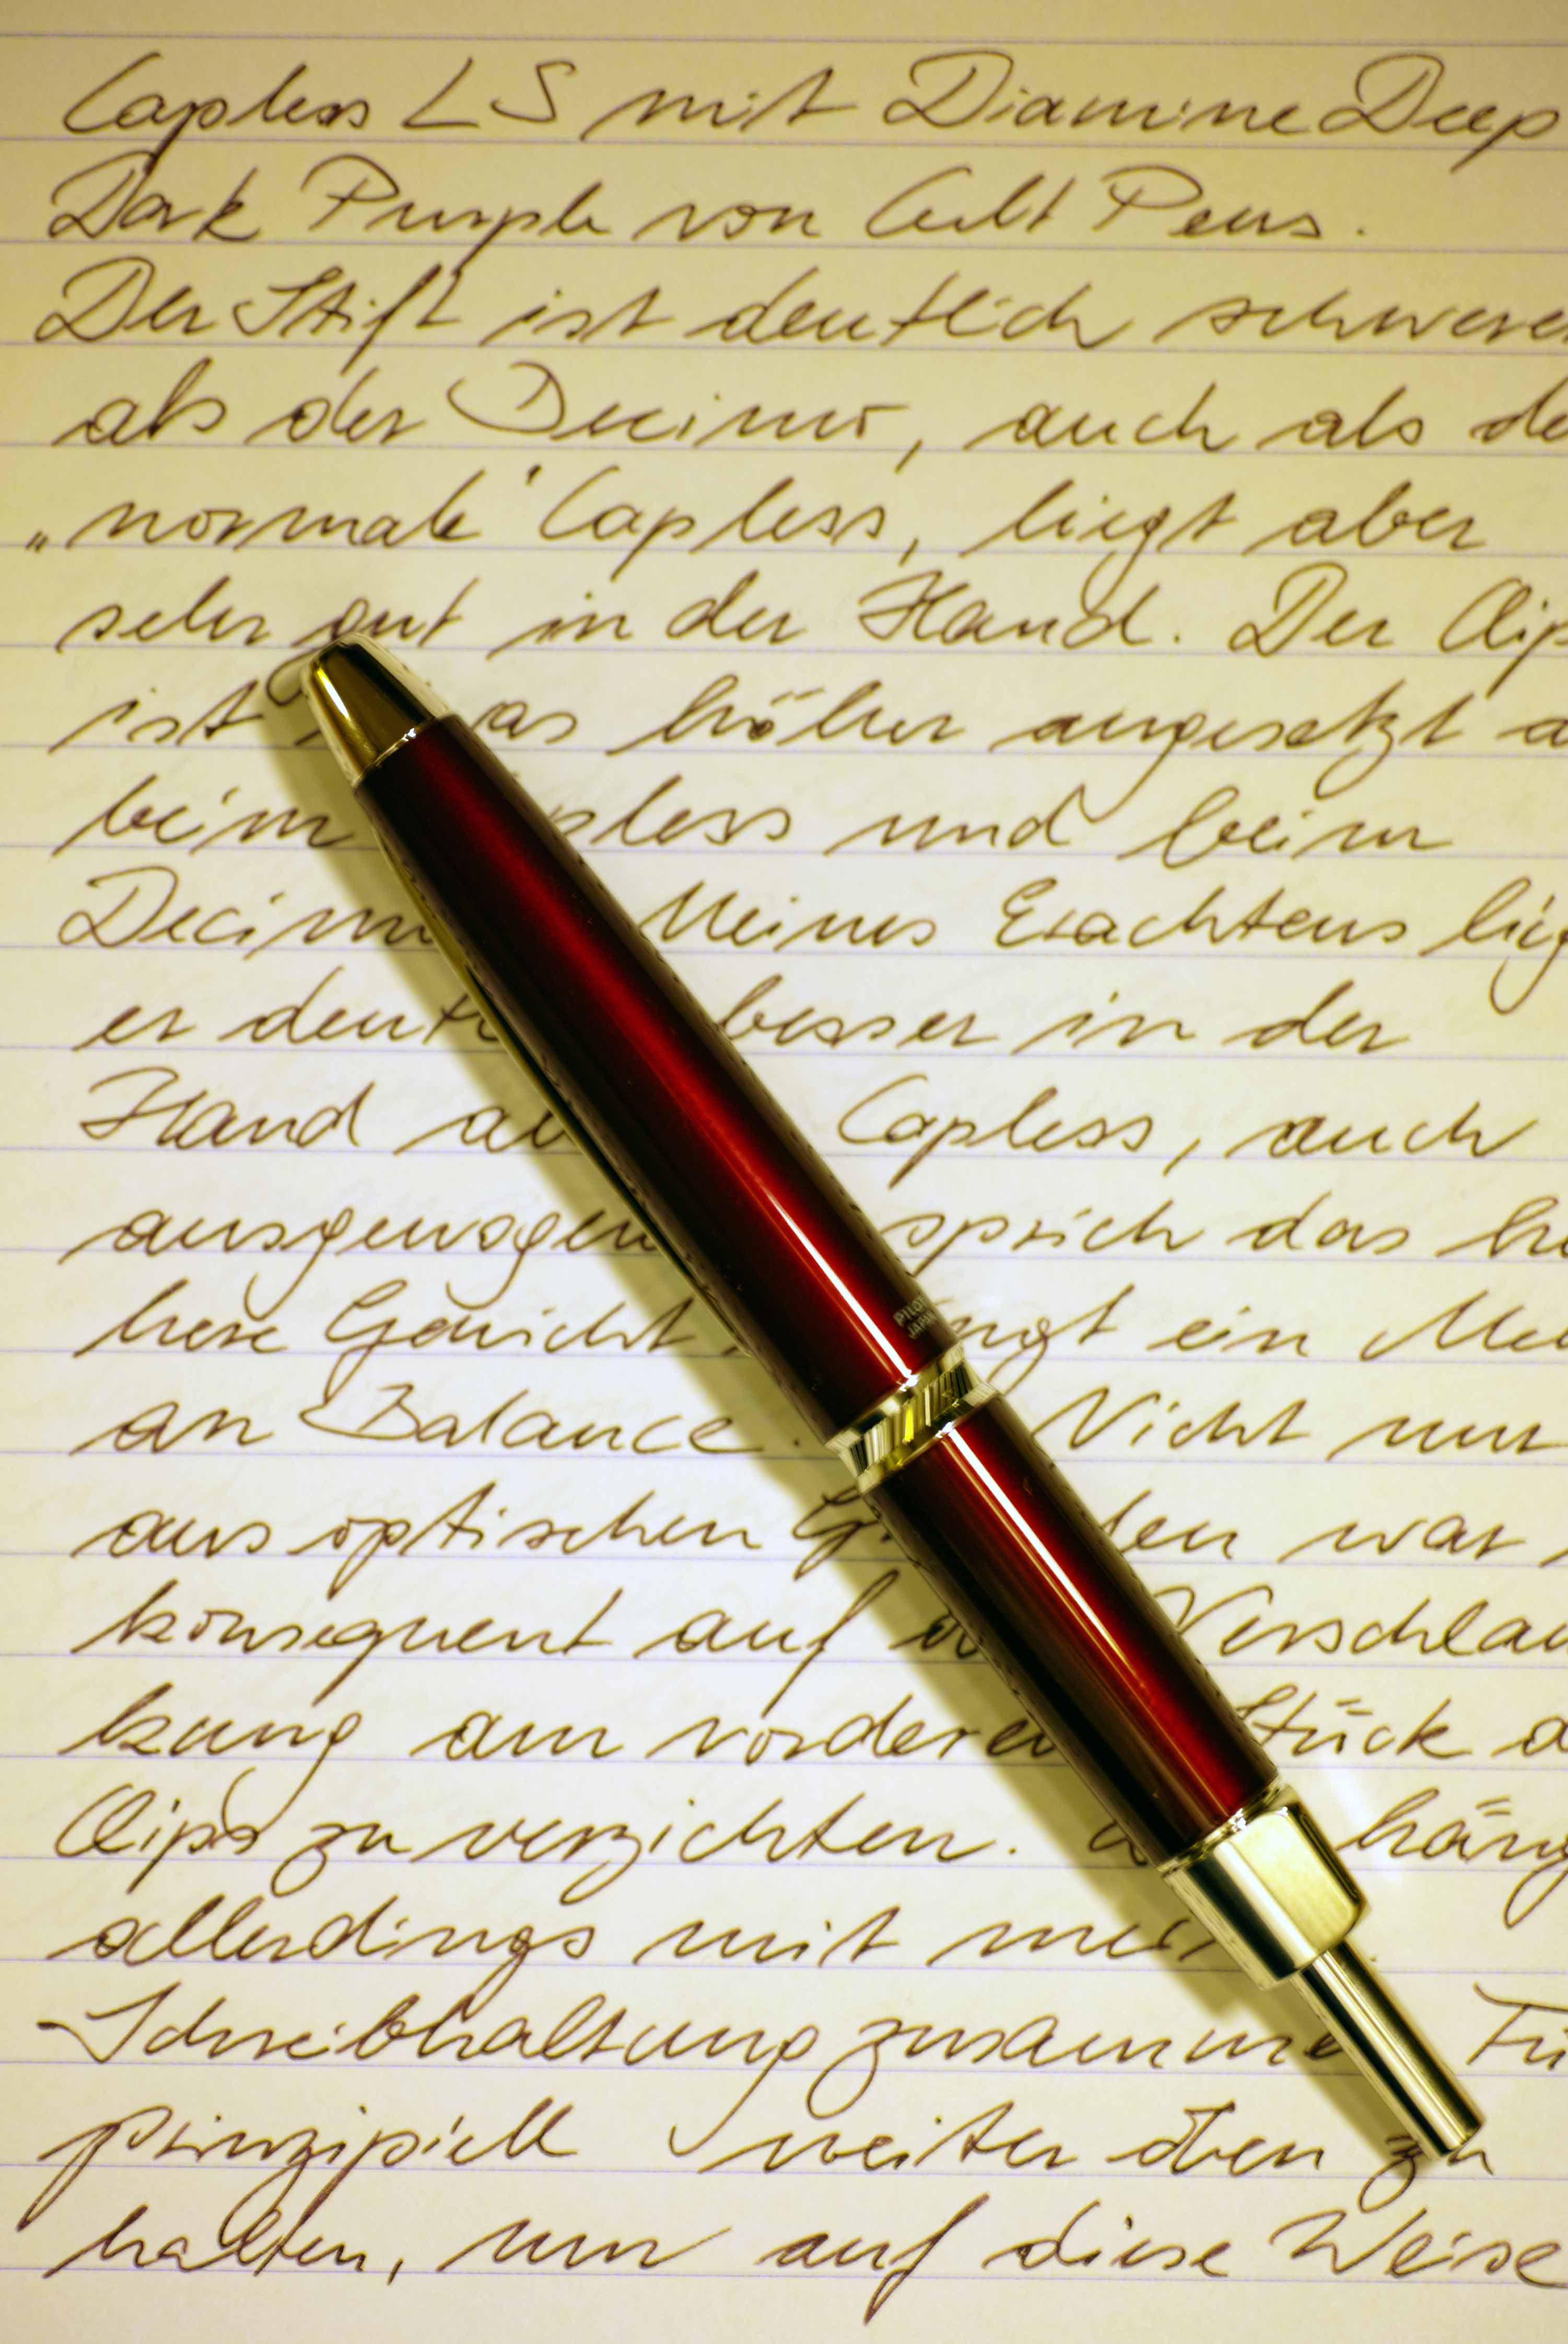 Capless LS mit Diamine Deep
Dark Purple von Cult Pens.
Der Stift ist deutlich schwerer
als der Decimo, auch als
„normale" Capless, liegt aber
sehr gut in der Hand. Der Clip
ist höher angesetzt
beim und beim
Meines Erachtens
er besser in der
Hand Capless, auch
ausgewogen sprich das
Gewicht ein
an Balance. Nicht nur
aus optischen war
konsequent auf
kung am vorderen Stück
Clips zu verzichten.
allerdings mit
Schreibhaltung
prinzipiell weiter oben zu
halten, um auf diese Weise
PILOT
JAPAN